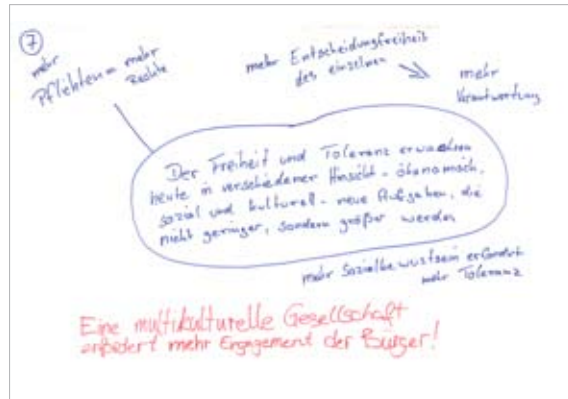 7
mehr
Pflichten = mehr
Rechte
mehr Entscheidungsfreiheit
des einzelnen
mehr
Verantwortung
Der Freiheit und Toleranz erwachsen
heute in verschiedener Hinsicht - ökonomisch,
sozial und kulturell - neue Aufgaben, die
nicht geringer, sondern größer werden
mehr Sozialbewustsein erfordert
mehr Toleranz
Eine multikulturelle Gesellschaft
erfordert mehr Engagement der Bürger!